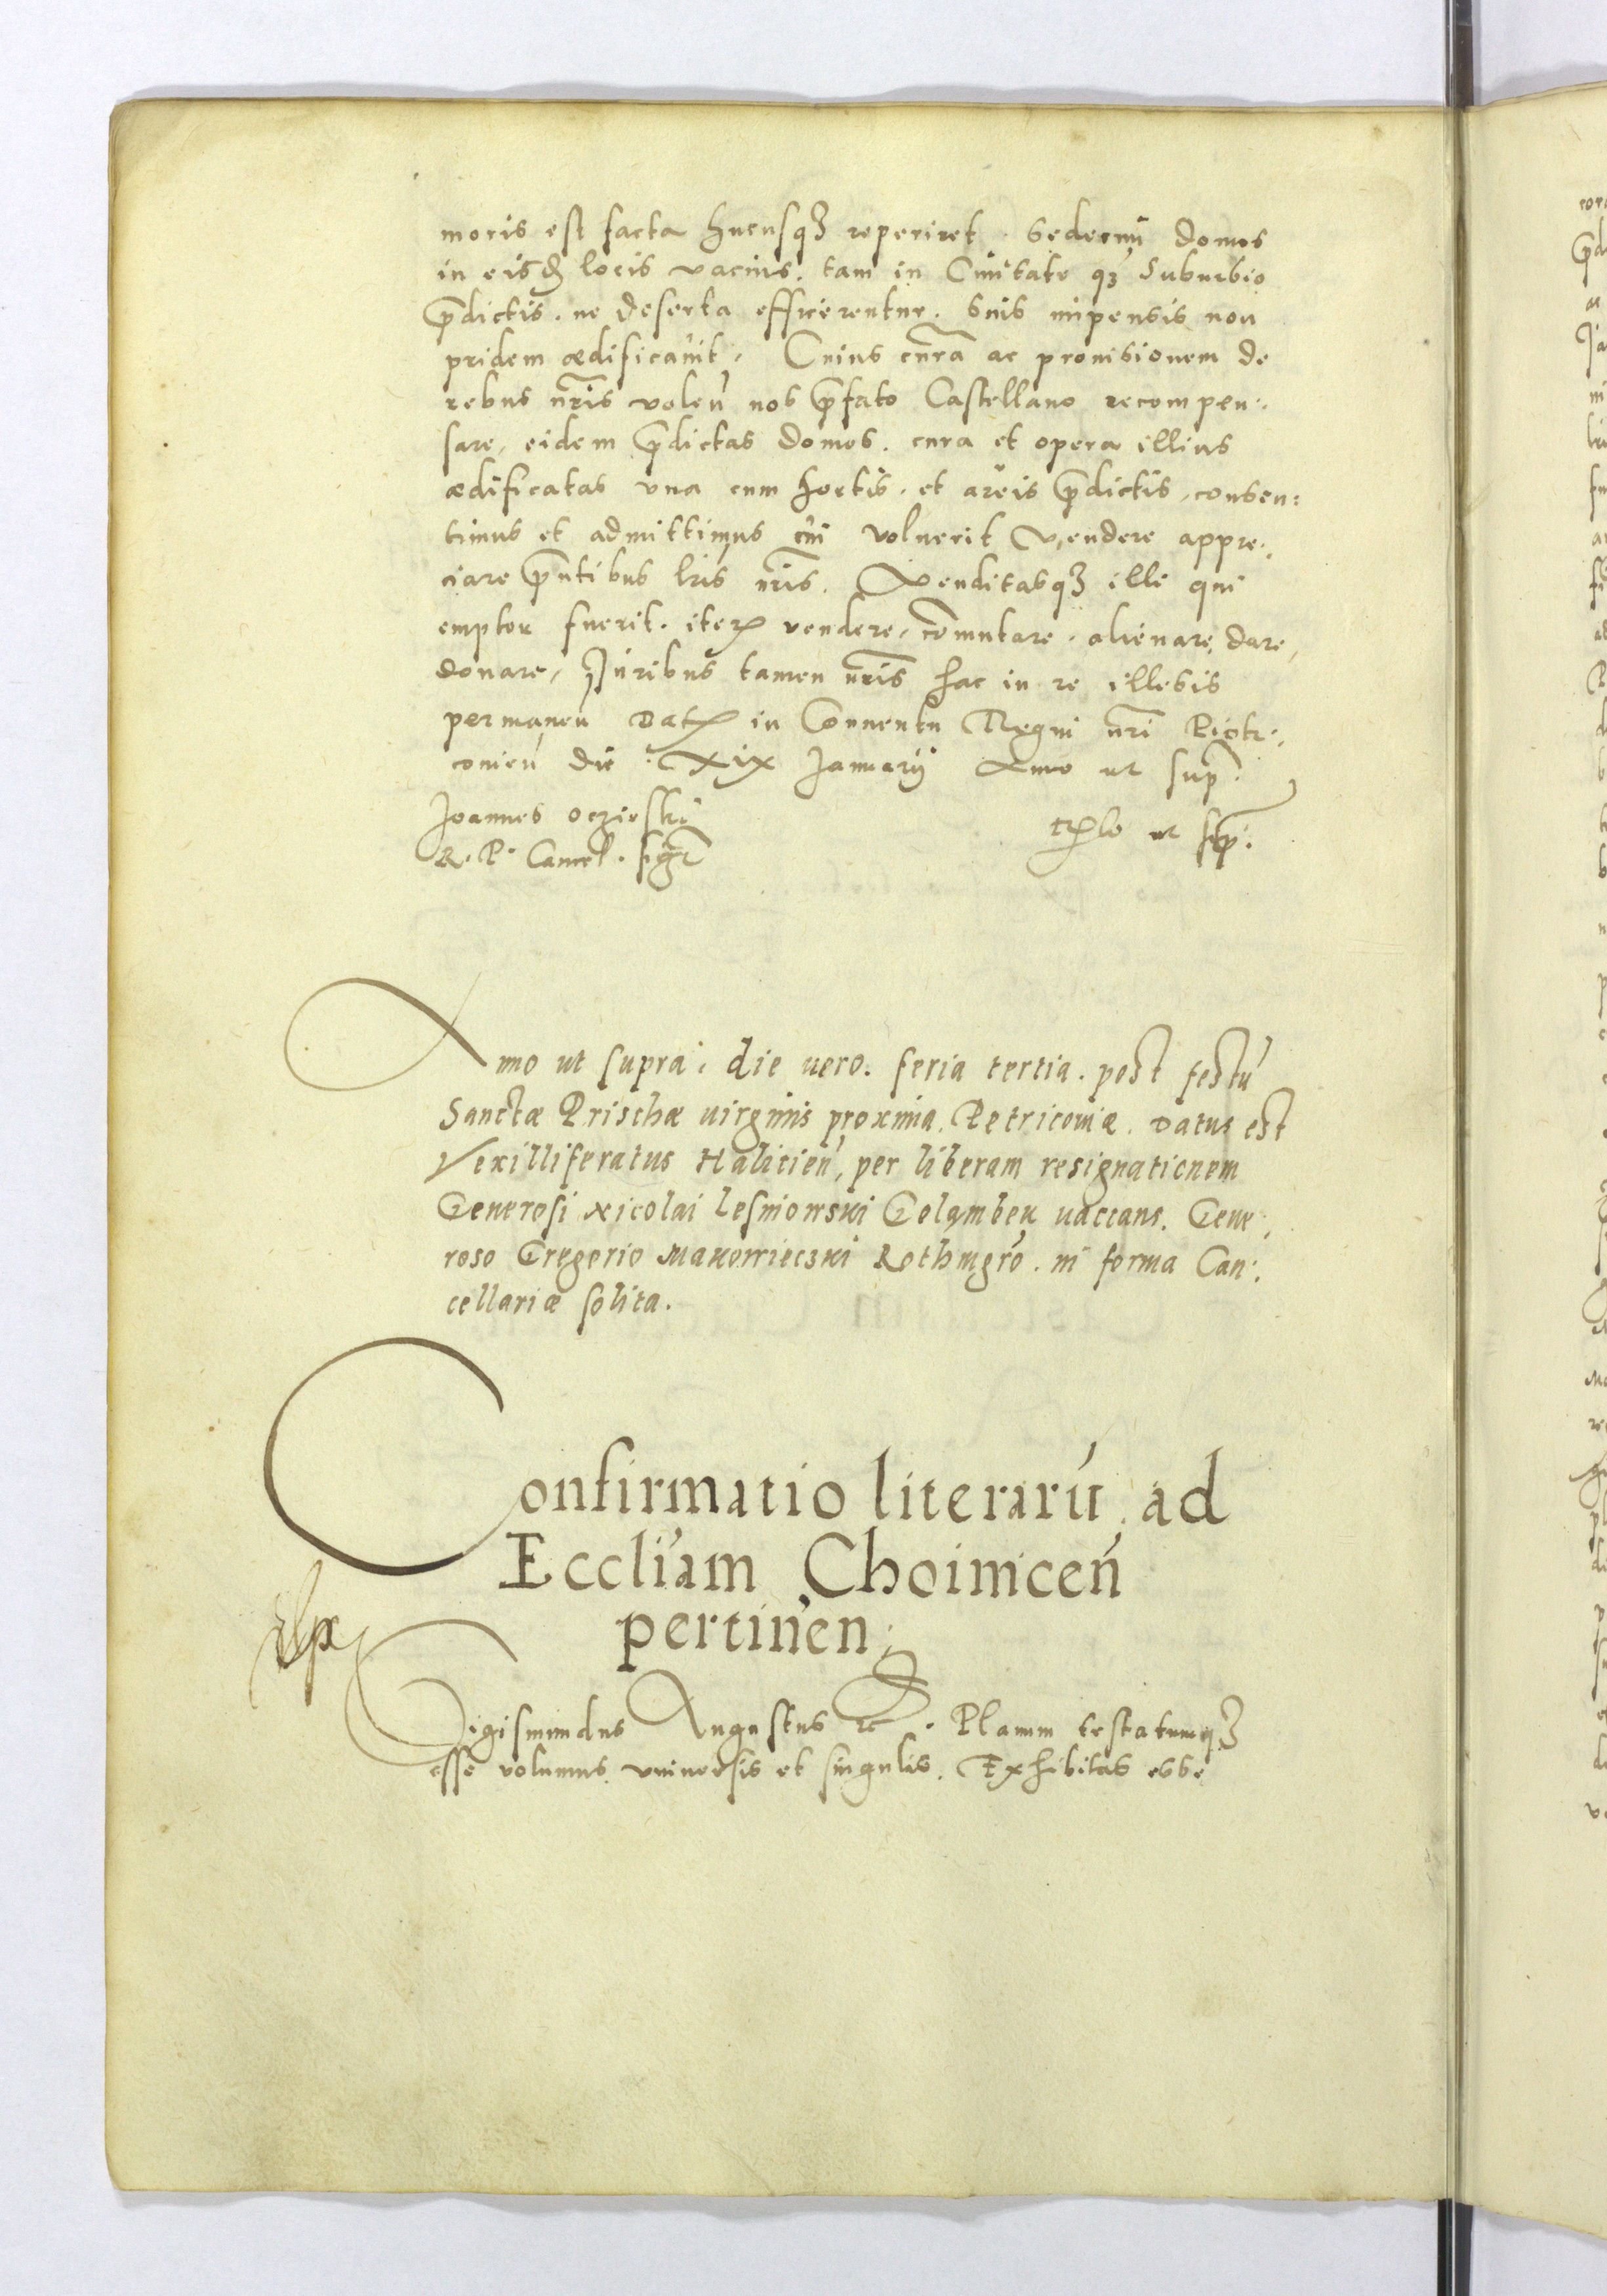 moris est facta hucusqз reperiret. Sedecim domos
in eisd locis vacuis. tam in Civitate qз Suburbio
pdictis. ne deserta efficerentur. Suis impensis non
pridem ædificavit. Cuius cura ac provisionem de
rebus nris volen nos pfato Castellano recompen:
sare, eidem pdictas domos. cura et opera illius
ædificatas vna cum hortis. et areis pdictis, consen:
timus et admittimus cui voluerit vendere appre:
ciare pntibus lris nris. Venditasqз ille qui
emptor fuerit. iterꝝ vendere, comutare. alienare, dare,
donare, Juribus tamen nris hac in re illesis
permanen Datꝝ in Conventu Regni nri Piotr:
comien die XIX January Anno ut sup:
Joannes oczieski
R. P. Cancel. sgt
tꝝlo ut sup:
Anno ut supra. die uero. feria tertia. post festu
Sanctæ Prischæ uirginis proxima. Petricouiæ. Datus est
Vexilliferatus Halicien, per liberam resignationem
Generosi Nicolai Lesniowski Golambek uaccans. Gene:
roso Gregorio Makowieczki Rothmgro. in forma Can:
cellariæ solita.
Confirmatio literaru ad
Eccliam Choinicen
pertinen
Sigismundus Augustus zc. Planum testatumqз
esse volumus vniuersis et singulis. Exhibitas esse